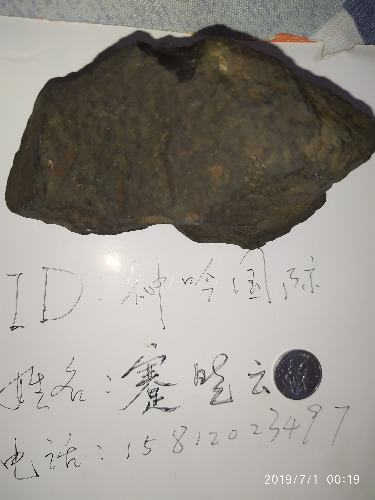 ID:神吟周际
姓名:蹇晓云
电话:15812023497
2019/7/1 00:19